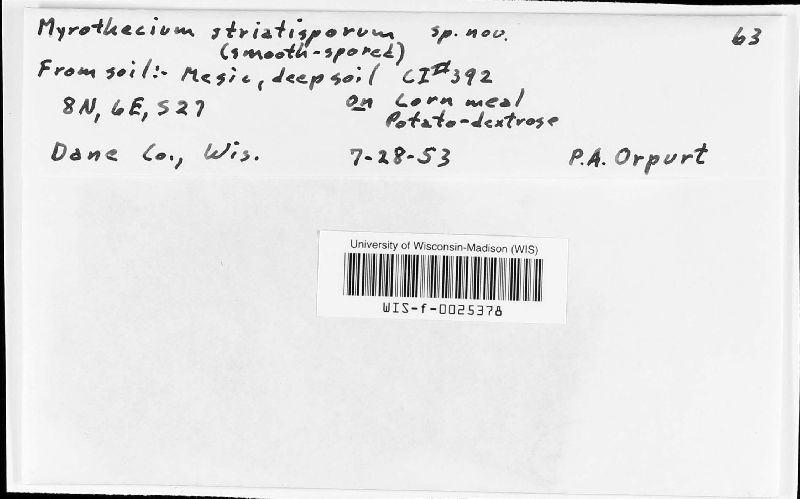 Myrothecium striatisporum sp. nov. 63
(smooth-spored)
From soil:- Mesic, deep soil CI#392
8N, 6E, S27 on Corn meal
Potato-dextrose
Dane Co., Wis. 7-28-53 P.A. Orpurt
University of Wisconsin-Madison (WIS)
WIS-f-0025378